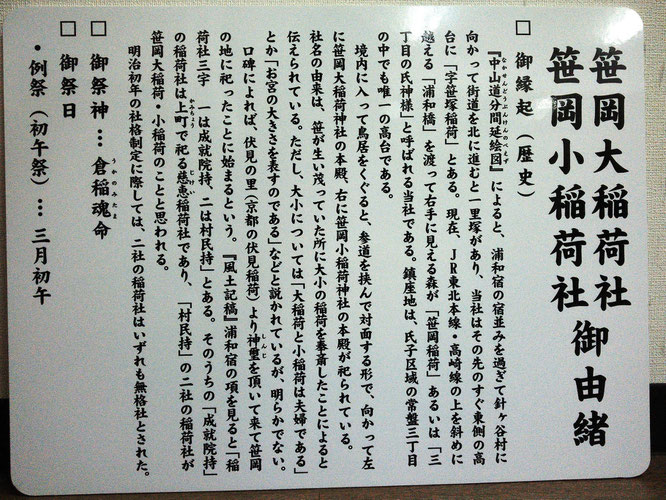 笹岡大稲荷社
笹岡小稲荷社
御由緒
□ 御縁起（歴史）
『中山道分間延絵図』によると、浦和宿の宿並みを過ぎて針ヶ谷村に
なかせんどうぶんけんのべえず
向かって街道を北に進むと一里塚があり、当社はその先のすぐ東側の高
台に「字笹塚稲荷」とある。現在、ＪＲ東北本線・高崎線の上を斜めに
越える「浦和橋」を渡って右手に見える森が「笹岡稲荷」あるいは「三
丁目の氏神様」と呼ばれる当社である。鎮座地は、氏子区域の常盤三丁目
の中でも唯一の高台である。
境内に入って鳥居をくぐると、参道を挟んで対面する形で、向かって左
に笹岡大稲荷神社の本殿、右に笹岡小稲荷神社の本殿が祀られている。
社名の由来は、笹が生い茂っていた所に大小の稲荷を奉斎したことによると
伝えられている。ただし、大小については「大稲荷と小稲荷は夫婦である」
とか「お宮の大きさを表すのである」などと説かれているが、明らかでない。
口碑によれば、伏見の里（京都の伏見稲荷）より神璽を頂いて来て笹岡
しんじ
の地に祀ったことに始まるという。『風土記稿』浦和宿の項を見ると「稲
荷社三宇　一は成就院持、二は村民持」とある。そのうちの「成就院持」
の稲荷社は上町で祀る慈恵稲荷社であり、「村民持」の二社の稲荷社が
かみちょう
じけい
笹岡大稲荷・小稲荷のことと思われる。
明治初年の社格制定に際しては、二社の稲荷社はいずれも無格社とされた。
□ 御祭神 … 倉稲魂命
うかのみたま
□ 御祭日
・例祭（初午祭）… 三月初午